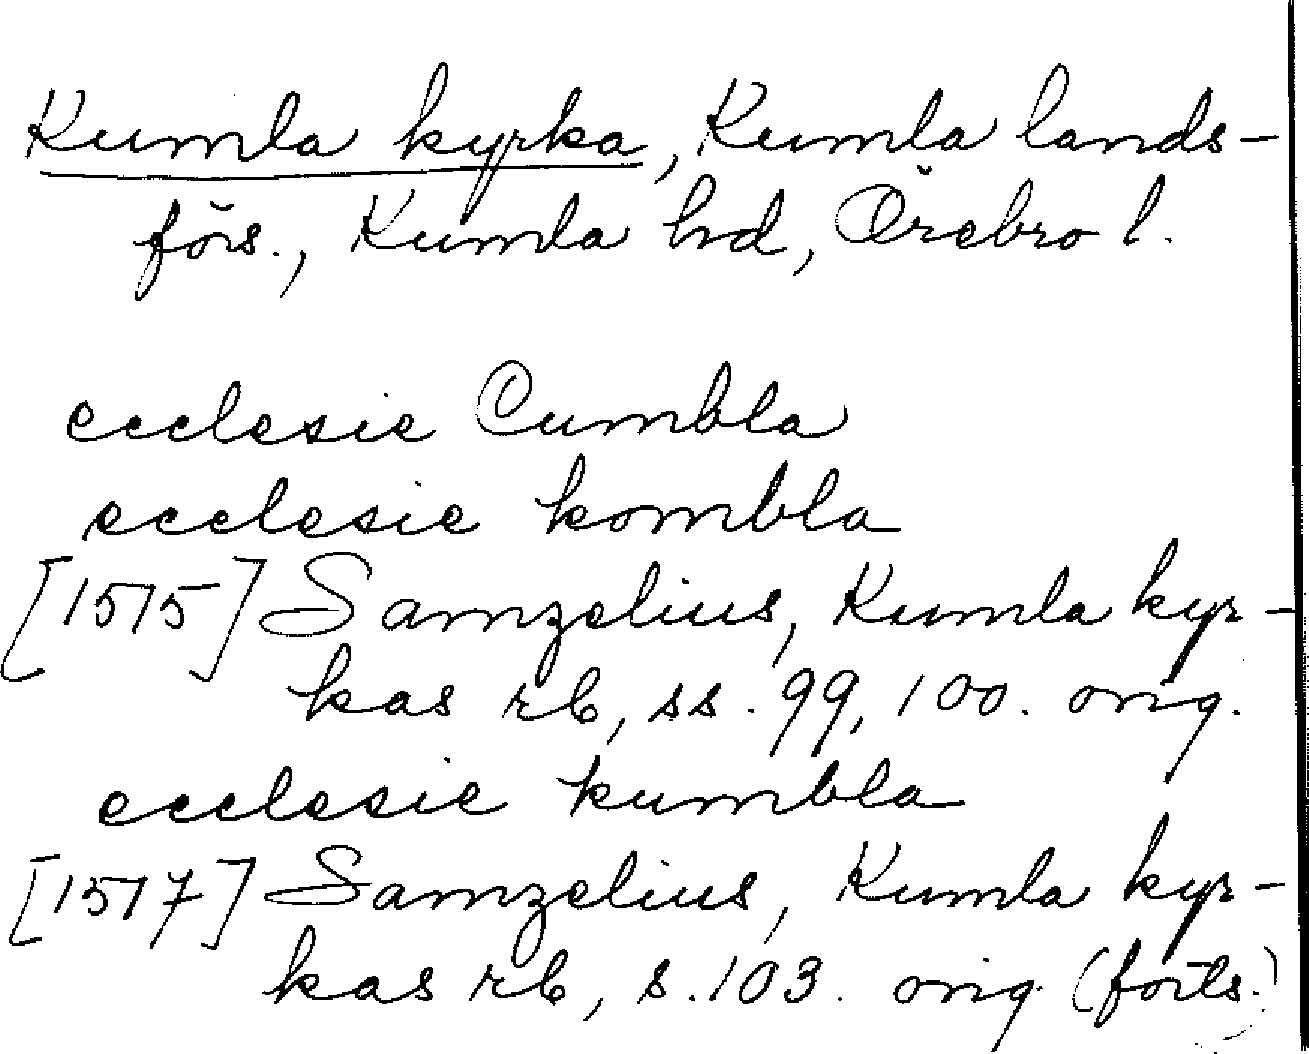 Kumla kyrka, Kumla lands-
förs., Kumla hd, Örebro l.
ecclesie Cumbla
ecclesie kombla
[1515] Samzelius, Kumla kyr-
kas rb, ss. 99, 100. orig.
ecclesie kumbla
[1517] Samzelius, Kumla kyr-
kas rb, s. 103. orig. (forts.)